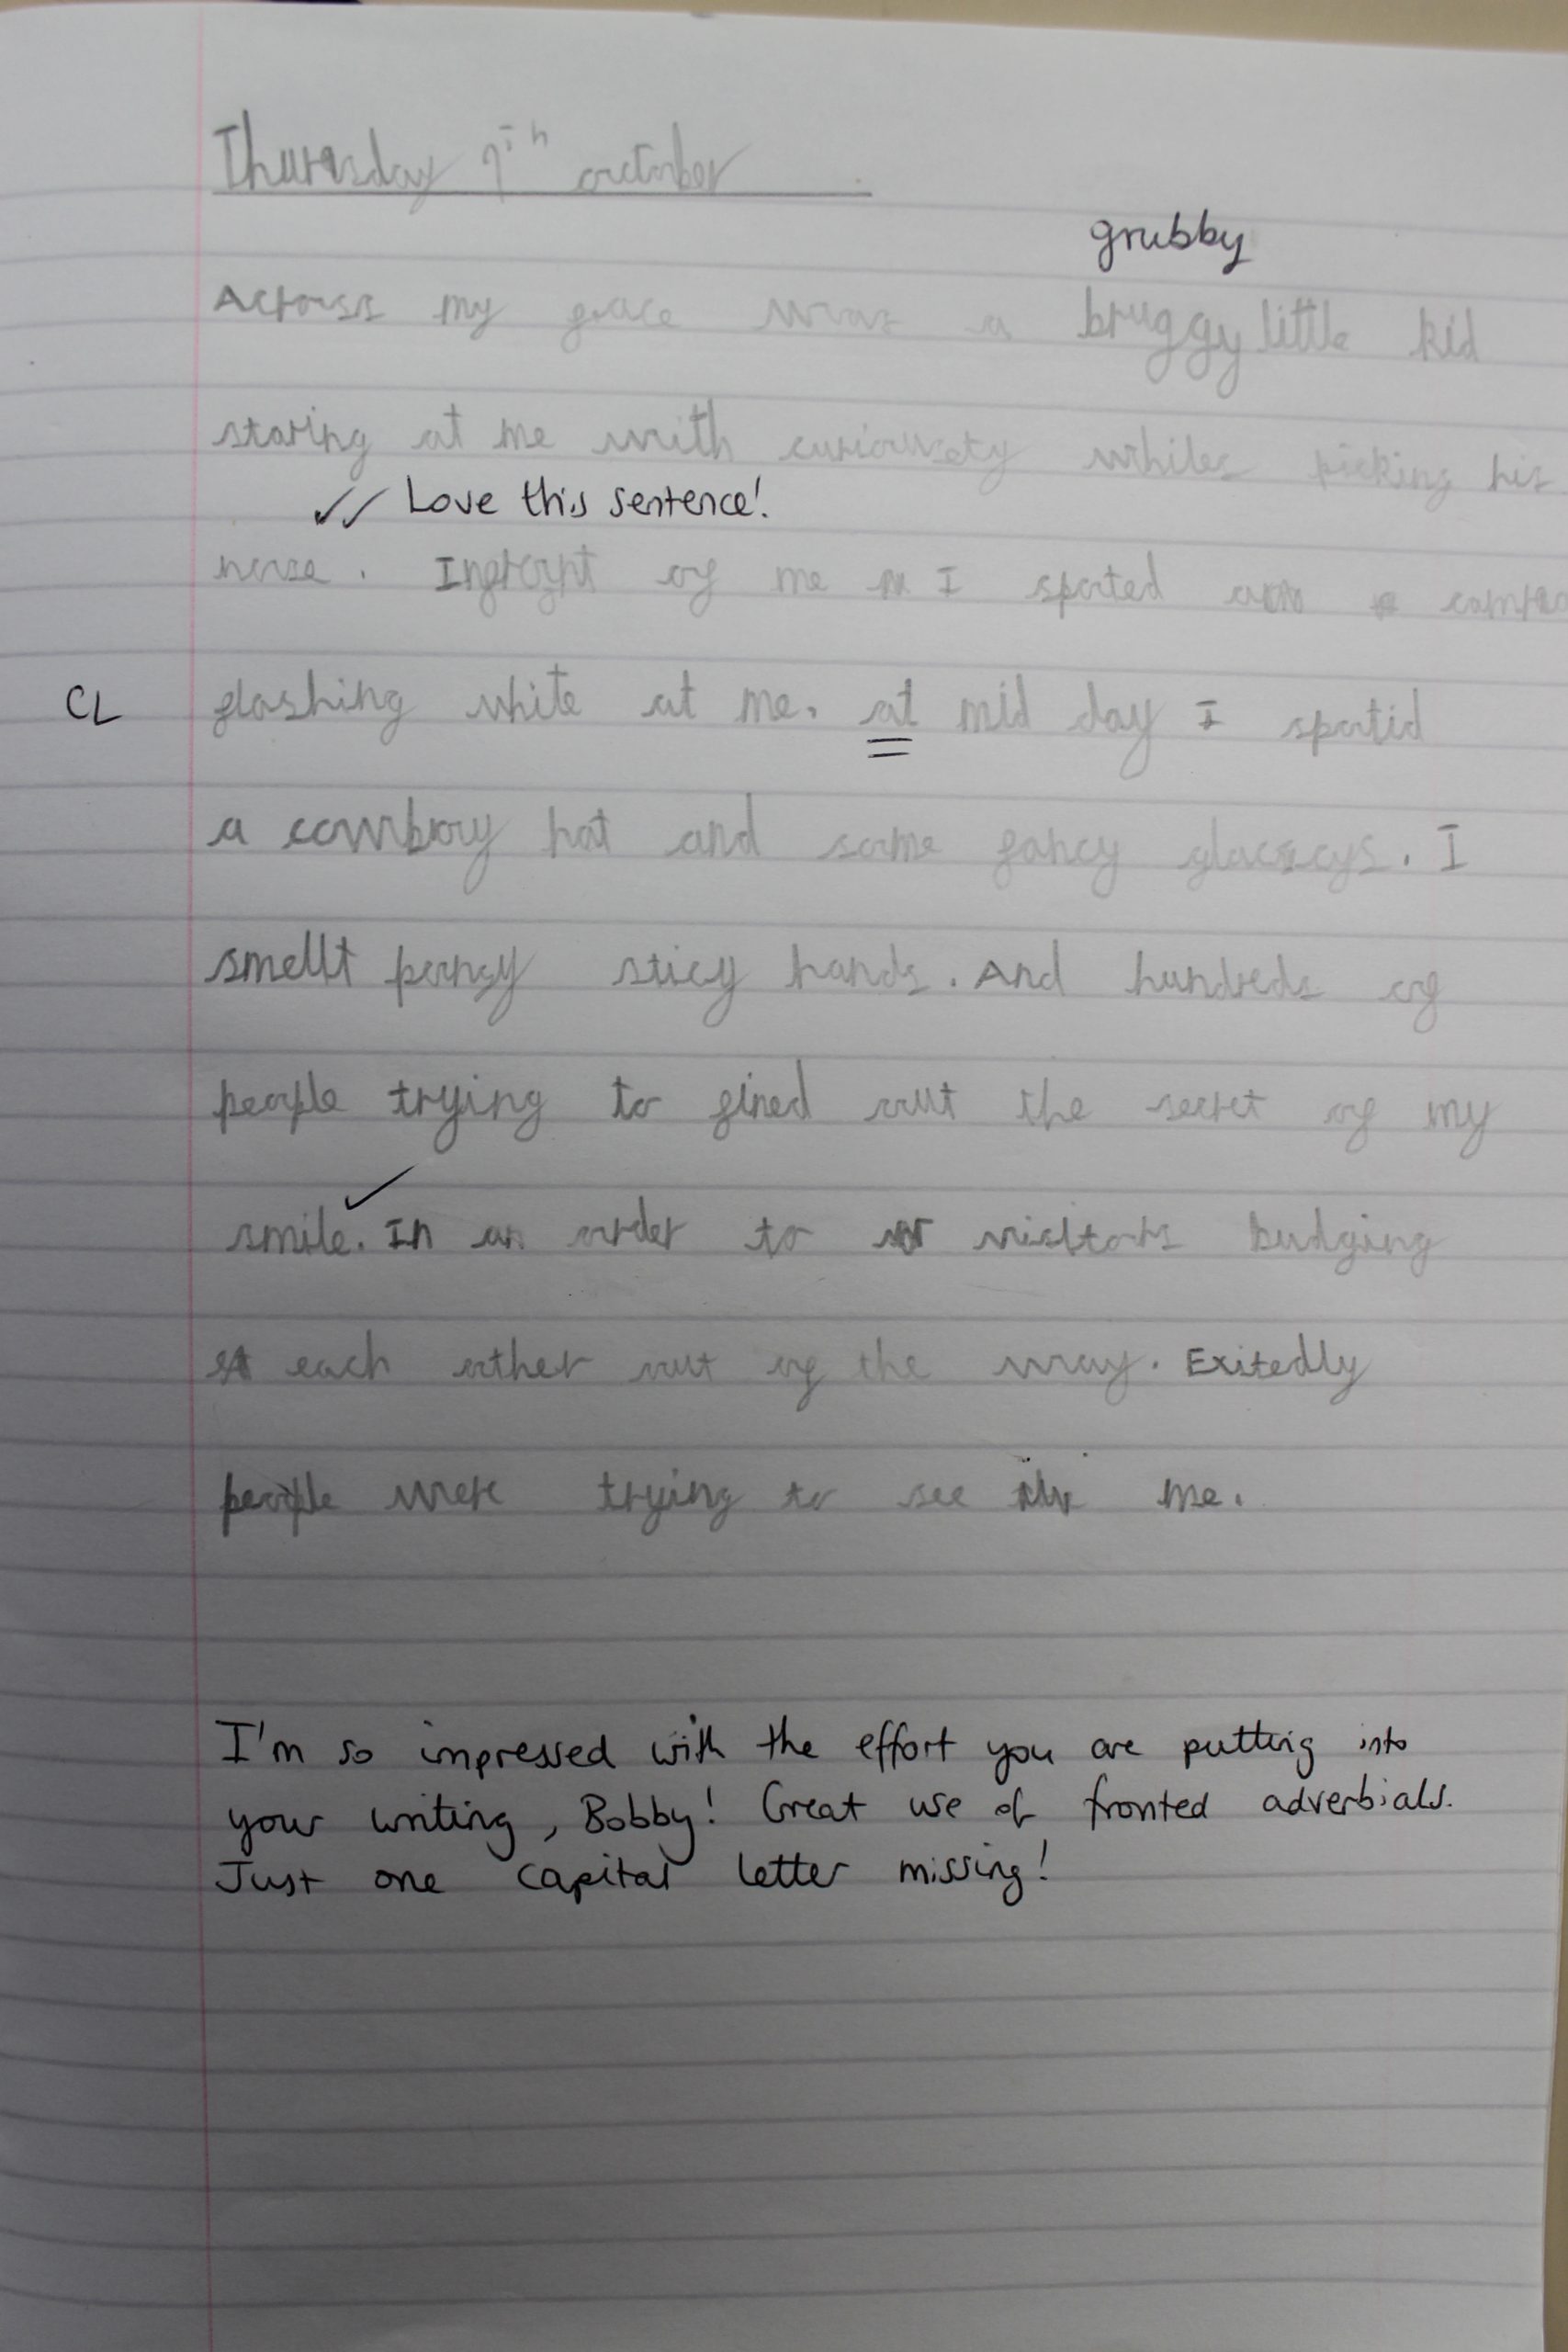 Thursday 9th october
grubby
Across my face was a bruggy little kid
staring at me with curiousety whiles picking his
✓✓ Love this sentence!
nose. Ingroynt of me I spoted
CL flashing white at me. at mid day I spotid
a cowboy hat and some fancy I
smellt pongy sticy hands. And hundreds of
people trying to fined out the secret of my
smile. In an order to visitors budging
each other out of the way. Exitedly
people were trying to see me.
I'm so impressed with the effort you are putting into
your writing, Bobby! Great use of fronted adverbials.
Just one capital letter missing!